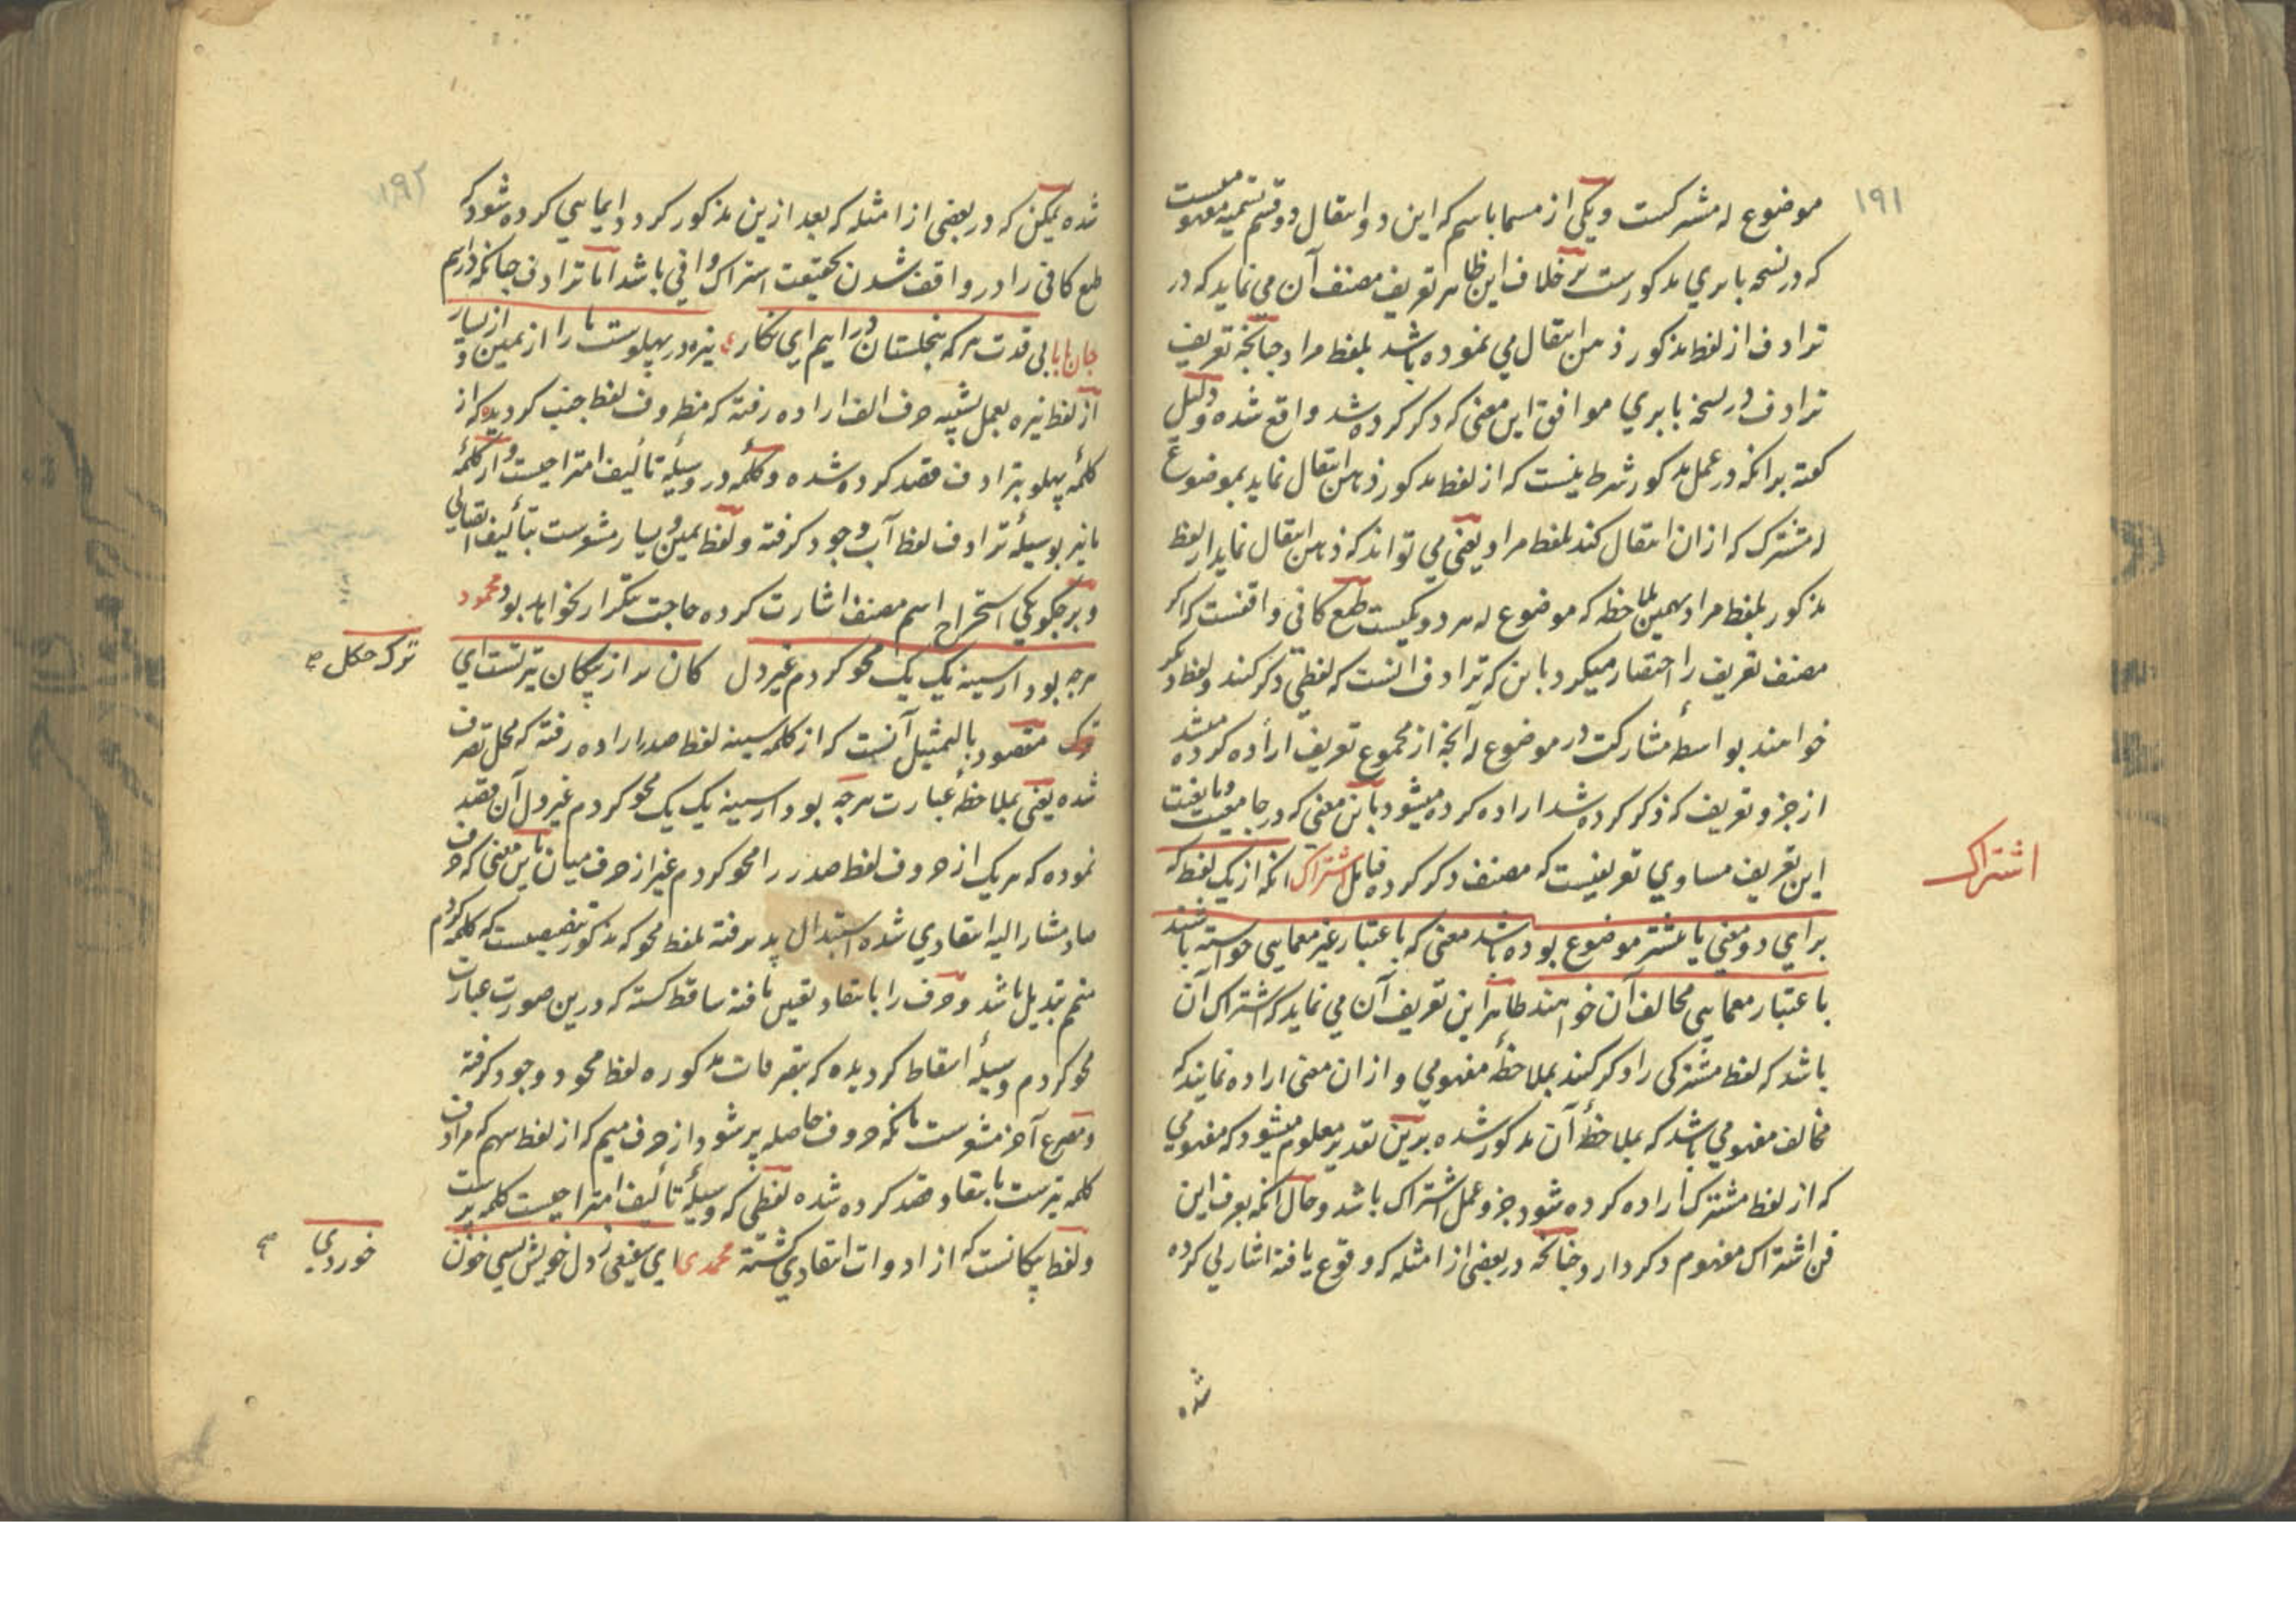 ۱۹۱
موضوع له مشترکست و یکی از مسما باسم که این دو انتقال دو قسم تسمیه معهودست
که در نسخه بابری مذکورست بر خلاف این ظاهر تعریف مصنف آن می نماید که در
ترادف از لفظ مذکور ذهن انتقال می نموده باشد بلفظ مراد چنانچه تعریف
ترادف در نسخه بابری موافق این معنی که ذکر کرده شد واقع شده و دلیل
گفته برانکه در عمل مذکور شرط نیست که از لفظ مذکور ذهن انتقال نماید بموضوع
له مشترک که ازان انتقال کند بلفظ مراد یعنی می تواند که ذهن انتقال نماید از لفظ
مذکور بلفظ مراد بهمین ملاحظه که موضوع له هر دو یکیست طبع کافی واقفست که اگر
مصنف تعریف را اختصار میکرد باین که ترادف آنست که لفظی ذکر کنند و لفظ دیگر
خواهند بواسطه مشارکت در موضوع له آنچه از مجموع تعریف اراده کرده میشد
از جزو تعریف که ذکر کرده شد اراده کرده میشود باین معنی که در جامعیت و مانعیت
این تعریف مساوی تعریفیست که مصنف ذکر کرده فتامل اشتراک انکه از یک لفظ که
اشتراک
برای دو معنی یا بیشتر موضوع بوده باشد معنی که باعتبار غیر معمایی خواسته باشند
باعتبار معمایی مخالف آن خواهند ظاهرا این تعریف آن می نماید که اشتراک آن
باشد که لفظ مشترکی را ذکر کنند بملاحظه مفهومی و ازان معنی اراده نمایند که
مخالف مفهومی باشد که بملاحظه آن مذکور شده برین تقدیر معلوم میشود که مفهومی
که از لفظ مشترک اراده کرده شود جزو عمل اشتراک باشد و حال انکه بعرف این
فن اشتراک مفهوم ذکر دارد چنانچه در بعضی از امثله که وقوع یافته اشارتی کرده
شده
۱۹۲
شده یمکن که در بعضی از امثله که بعد ازین مذکور گردد ایمایی کرده شود که
طبع کافی را در واقف شدن بحقیقت اشتراک وافی باشد اما ترادف چنانکه در اسم
جان بابا بی قدت هر که بنخلستان درایم ای نگار نیزه در پهلوست ما را از یمین و از یسار
از لفظ نیزه بعمل تشبیه حرف الف اراده رفته که مظروف لفظ جنب گردیده که از
کلمه پهلو بترادف قصد کرده شده و کلمه در وسیله تألیف امتزاجیست و از کلمه
ما نیز بوسیله ترادف لفظ آب وجود گرفته و لفظ یمین و یسار مشعرست بتألیف اتصالی
و بر چگونگی استخراج اسم مصنف اشارت کرده حاجت بتکرار نخواهد بود محمود
هرچه بود از سینه یک یک محو کردم غیر دل کان پر از پیکان تیر تست ای
ترک چگل
ترک مقصود بالتمثیل آنست که از کلمه سینه لفظ صدر اراده رفته که محل تصرف
شده یعنی بملاحظه عبارت هرچه بود از سینه یک یک محو کردم غیر دل آن قصد
نموده که هر یک از حروف لفظ صدر را محو کردم غیر از حرف میان باین معنی که حرف
صاد مشار الیه انتقادی شده استبدال پذیرفته بلفظ محو که مذکور تنصیصست که کلمه کردم
متمم تبدیل باشد و حرف را بانتقاد تعین یافته ساقط گشته که درین صورت عبارت
محو کردم وسیله اسقاط گردیده که بتصرفات مذکوره لفظ محود وجود گرفته
و مصرع آخر مشعرست بانکه حروف حاصله پر شود از حرف میم که از لفظ سهم که مرادف
کلمه تیرست بانتقاد قصد کرده شده لفظی که وسیله تألیف امتزاجیست کلمه پرست
و لفظ پیکانست که از ادوات انتقادی گشته محمدی ای سیفی ز دل خویش بسی خون
خوردی